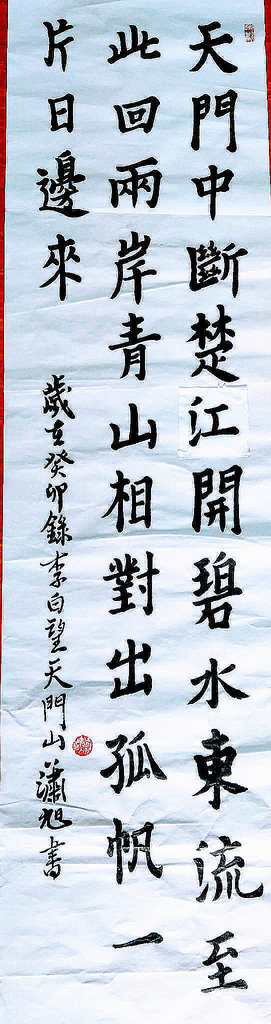 天門中斷楚江開碧水東流至
此回兩岸青山相對出孤帆一
片日邊來
歲在癸卯錄李白望天門山瀟旭書